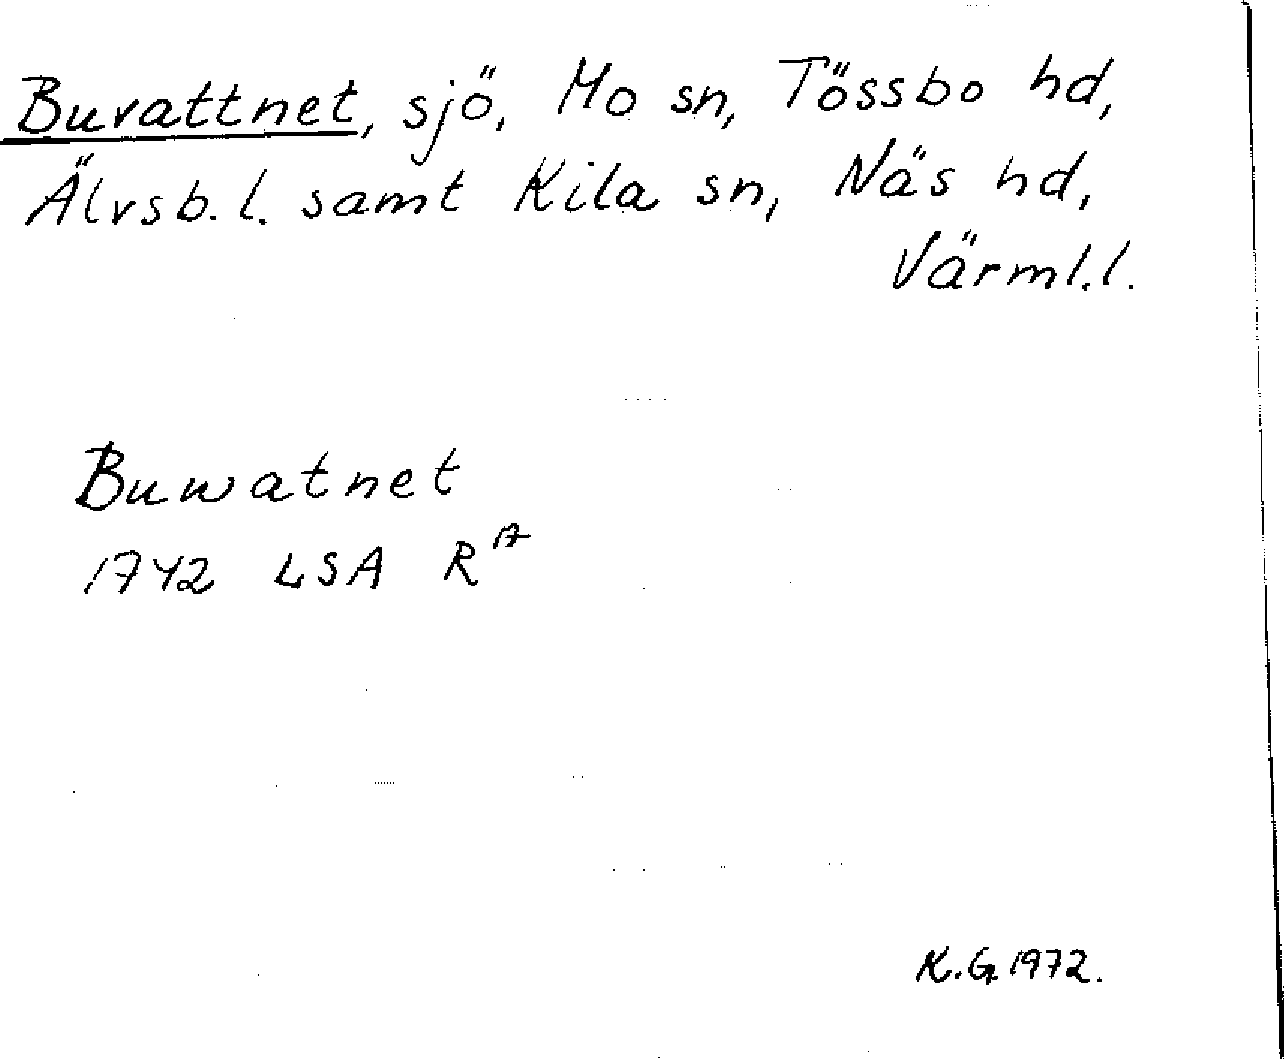 Buvattnet, sjö, Mo sn, Tössbo hd,
Älvsb. l. samt Kila sn, Näs hd,
Värml. l.
Buwatnet
1742 LSA R 17
K.G. 1972.